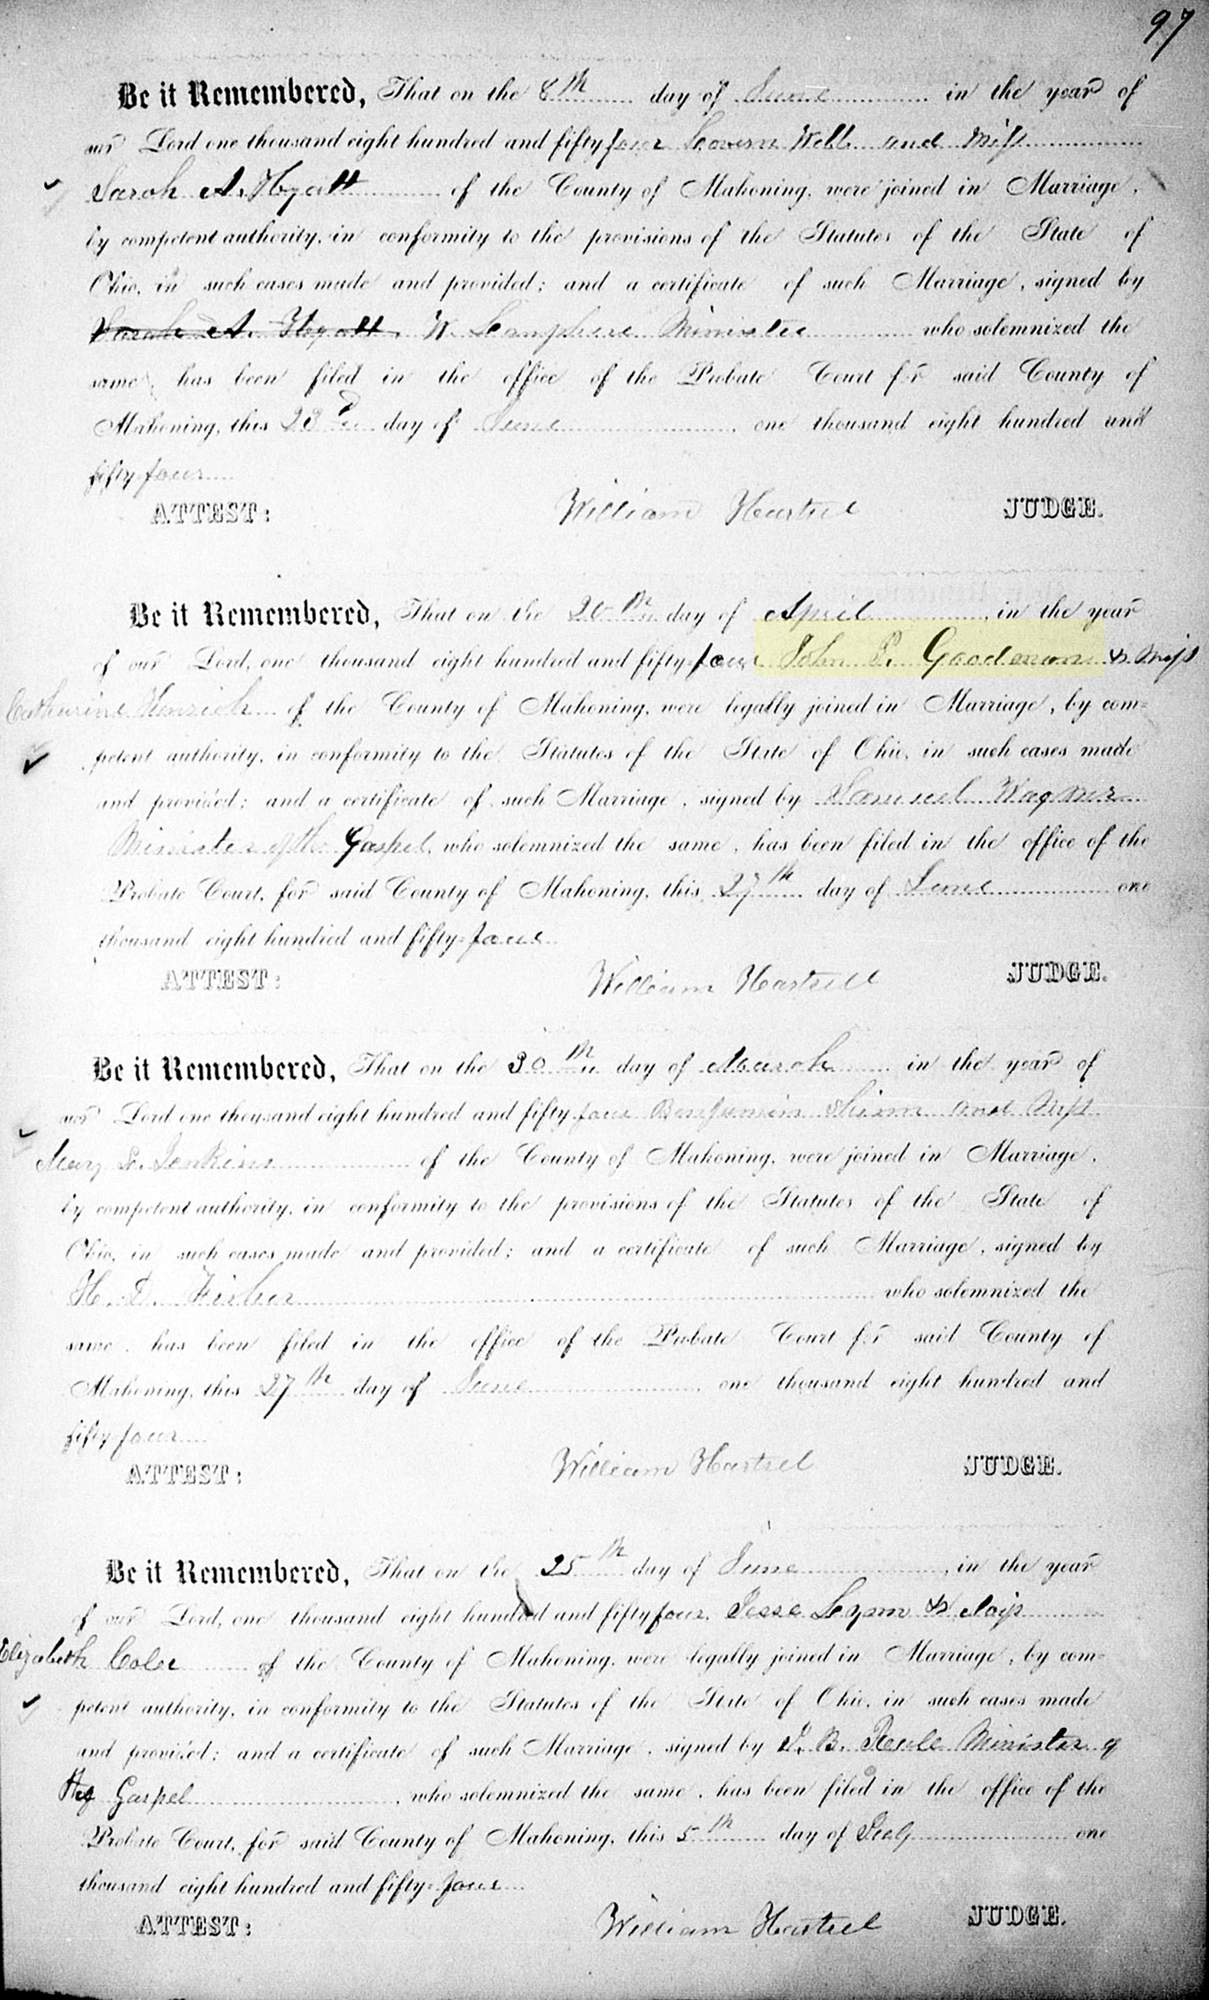 97
Be it Remembered, That on the 8th day of June in the year of
our Lord one thousand eight hundred and fifty four Webb and Miss
Sarah A. Hyatt of the County of Mahoning, were joined in Marriage,
by competent authority, in conformity to the provisions of the Statutes of the State of
Ohio, in such cases made and provided; and a certificate of such Marriage, signed by
Sarah A. Hyatt W. Lamphere Minister who solemnized the
same, has been filed in the office of the Probate Court for said County of
Mahoning, this 23d day of June, one thousand eight hundred and
fifty four
ATTEST: William Hartzel JUDGE.
Be it Remembered, That on the 20th day of April, in the year
of our Lord, one thousand eight hundred and fifty-four John P. Goodman & Miss
Catharine of the County of Mahoning, were legally joined in Marriage, by com-
petent authority, in conformity to the Statutes of the State of Ohio, in such cases made
and provided; and a certificate of such Marriage, signed by Samuel Wagner
Minister of the Gospel, who solemnized the same, has been filed in the office of the
Probate Court, for said County of Mahoning, this 27th day of June one
thousand eight hundred and fifty-four
ATTEST: William Hartzell JUDGE.
Be it Remembered, That on the 30th day of March in the year of
our Lord one thousand eight hundred and fifty four Benjamin and Miss
Mary Jenkins of the County of Mahoning, were joined in Marriage,
by competent authority, in conformity to the provisions of the Statutes of the State of
Ohio, in such cases made and provided; and a certificate of such Marriage, signed by
H. D. Fisher who solemnized the
same, has been filed in the office of the Probate Court for said County of
Mahoning, this 27th day of June, one thousand eight hundred and
fifty-four
ATTEST: William Hartzel JUDGE.
Be it Remembered, That on the 25th day of June, in the year
of our Lord, one thousand eight hundred and fifty four, Jesse Lynn & Miss
Elizabeth Coler of the County of Mahoning, were legally joined in Marriage, by com-
petent authority, in conformity to the Statutes of the State of Ohio, in such cases made
and provided; and a certificate of such Marriage, signed by Minister of
the Gospel, who solemnized the same, has been filed in the office of the
Probate Court, for said County of Mahoning, this 5th day of July one
thousand eight hundred and fifty-four
ATTEST: William Hartzel JUDGE.